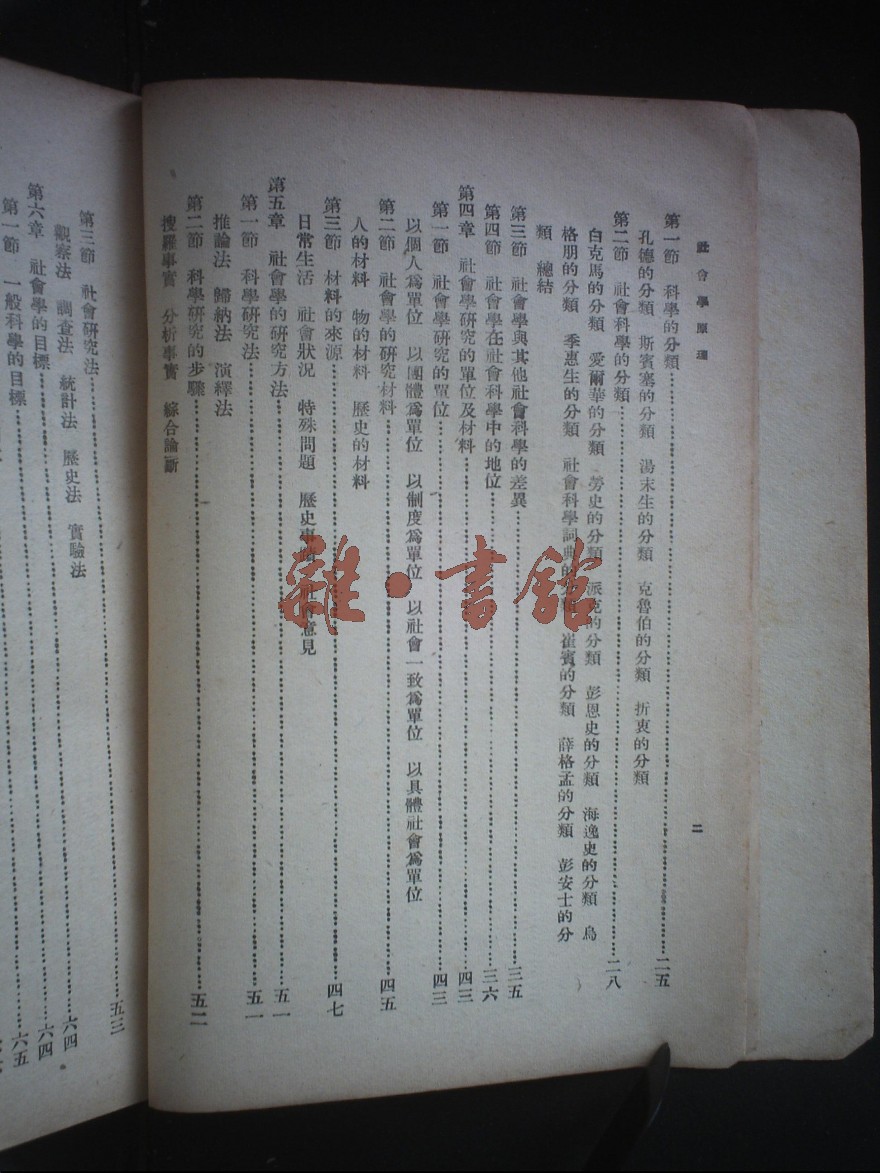 社會學原理
二
第一節 科學的分類……二五
孔德的分類 斯賓塞的分類 湯末生的分類 克魯伯的分類 折衷的分類
第二節 社會科學的分類……二八
白克馬的分類 愛爾華的分類 勞史的分類 派克的分類 彭恩史的分類 海逸史的分類 烏
格朋的分類 季惠生的分類 社會科學詞典的分類 崔賓的分類 薛格孟的分類 彭安士的分
類 總結
第三節 社會學與其他社會科學的差異……三五
第四節 社會學在社會科學中的地位……三六
第四章 社會學研究的單位及材料……四三
第一節 社會學研究的單位……四三
以個人為單位 以團體為單位 以制度為單位 以社會一致為單位 以具體社會為單位
第二節 社會學的研究材料……四五
人的材料 物的材料 歷史的材料
第三節 材料的來源……四七
日常生活 社會狀況 特殊問題 歷史事 社會意見
第五章 社會學的研究方法……五一
第一節 科學研究法……五一
推論法 歸納法 演繹法
第二節 科學研究的步驟……五二
搜羅事實 分析事實 綜合論斷
第三節 社會研究法……五三
觀察法 調查法 統計法 歷史法 實驗法
第六章 社會學的目標……六四
第一節 一般科學的目標……六四
六五
雜·書館